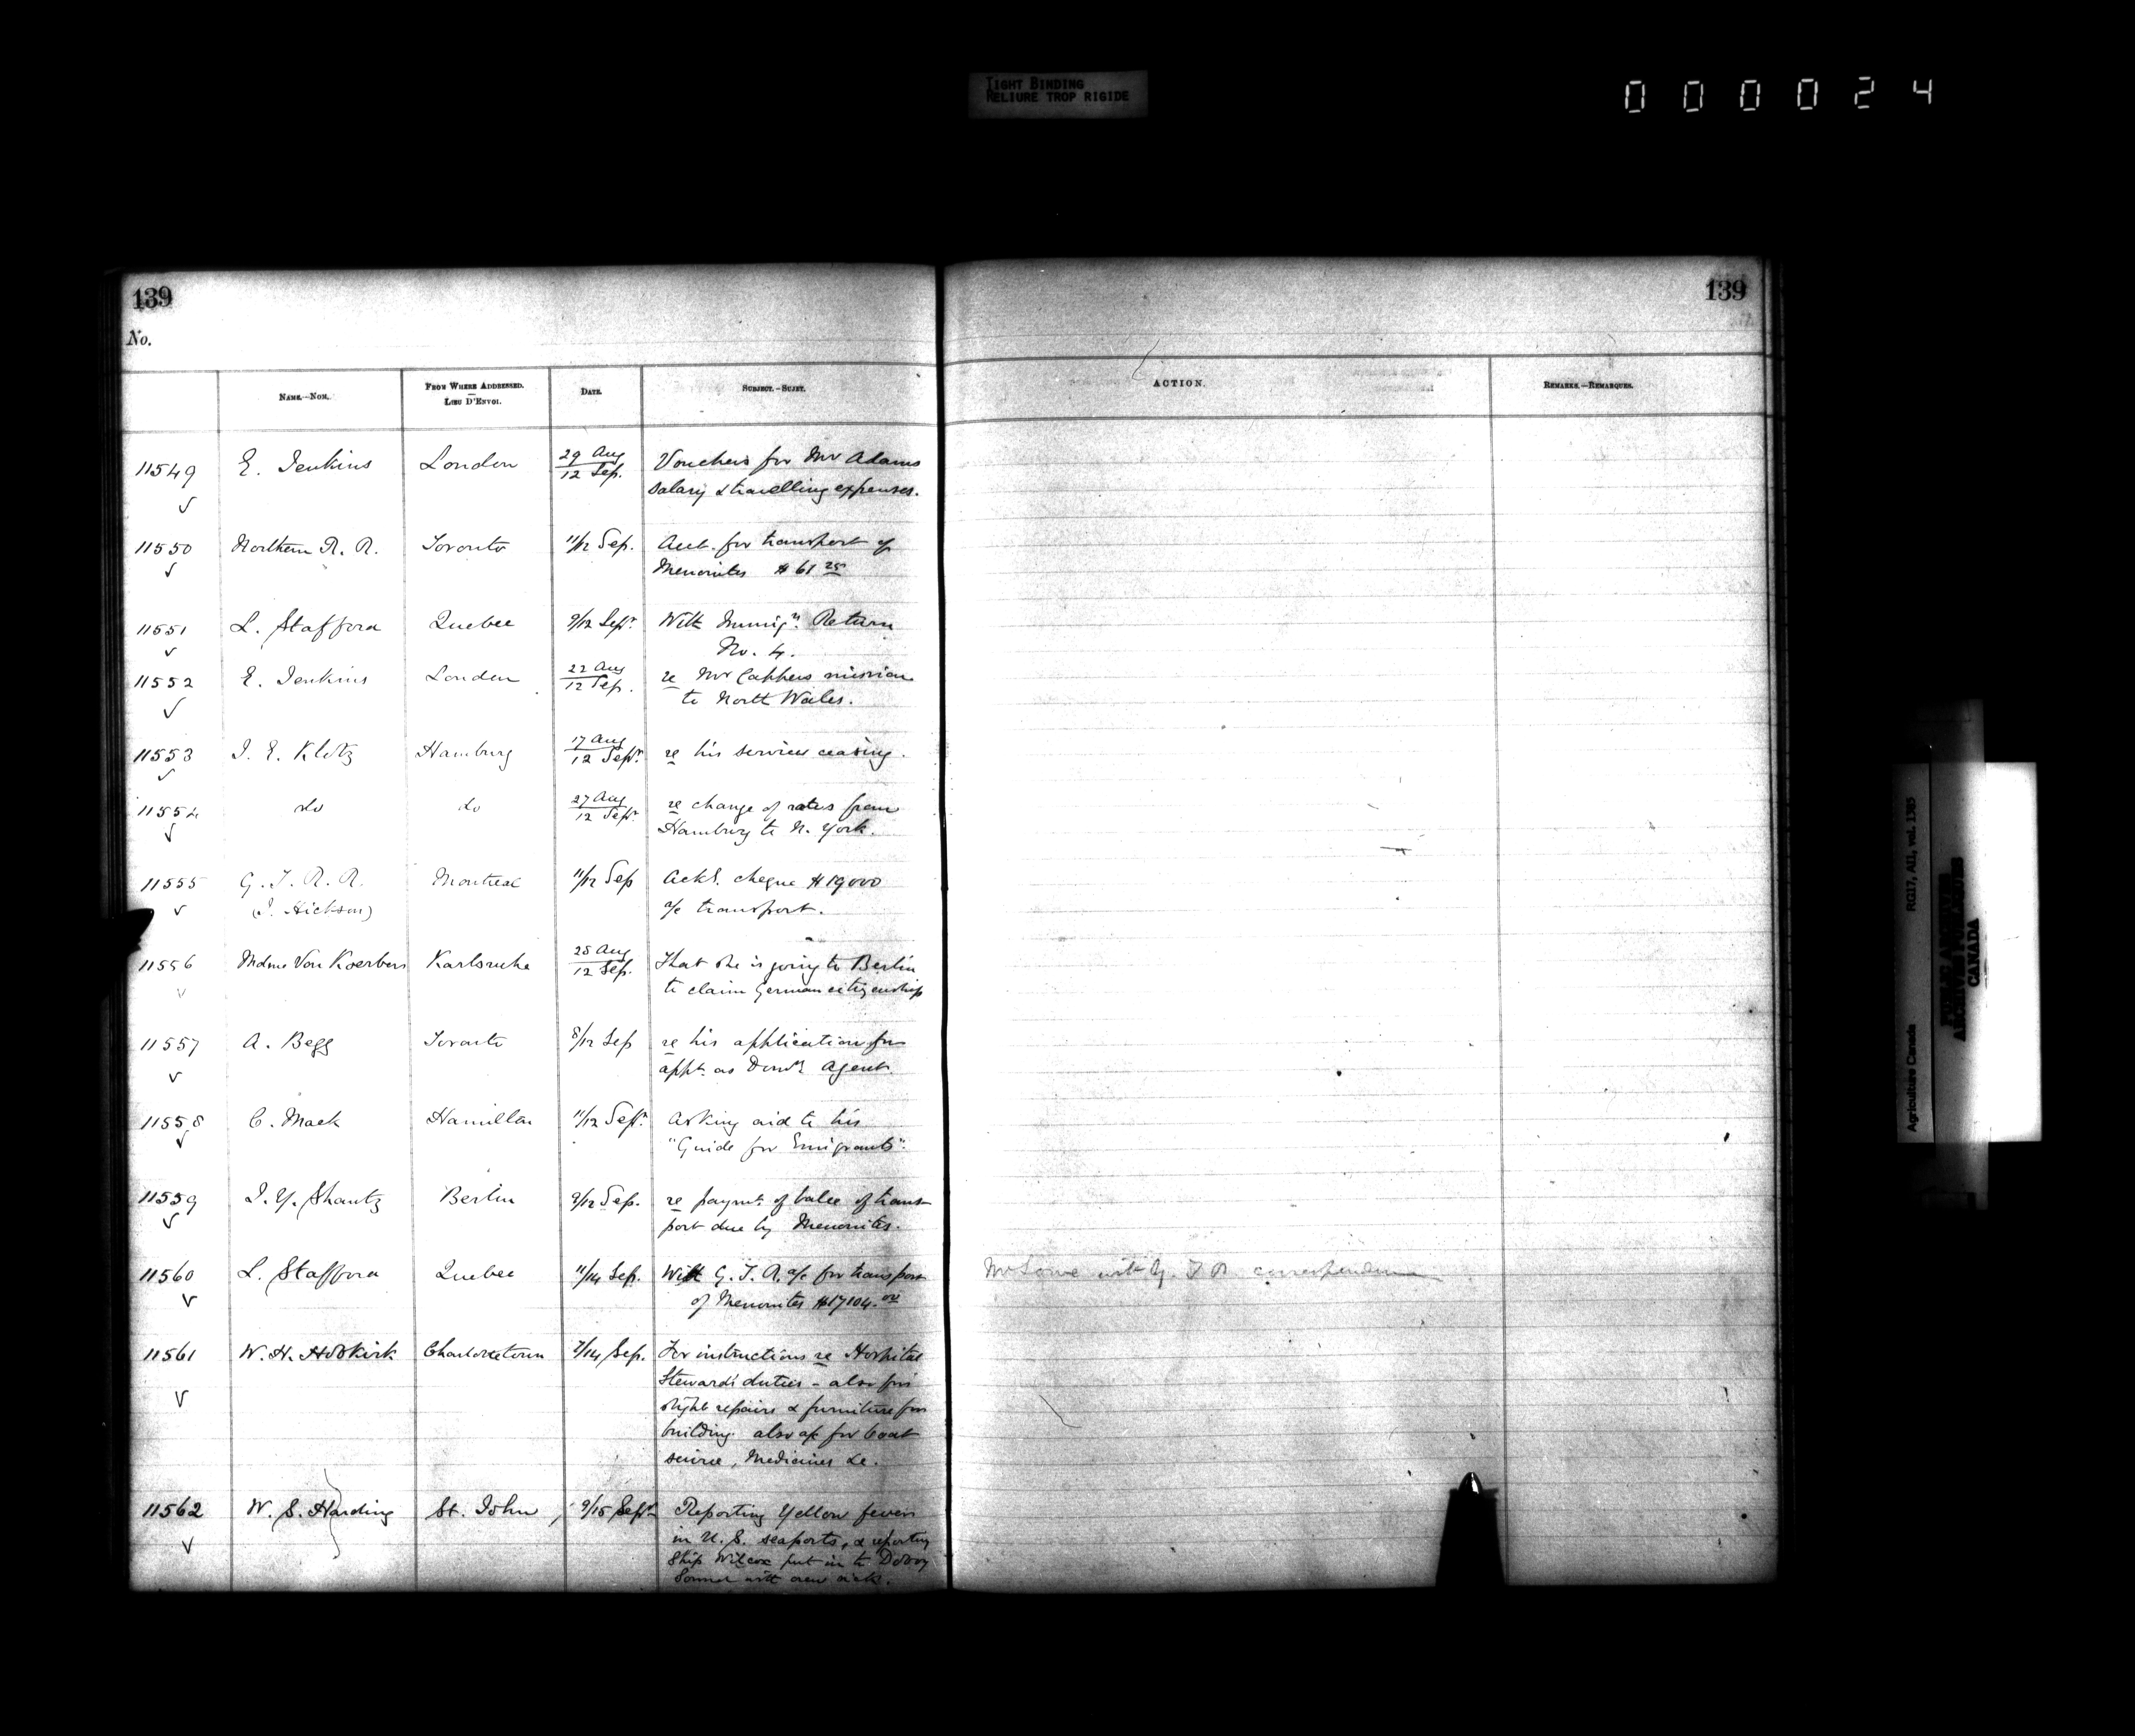 TIGHT BINDING
RELIURE TROP RIGIDE
000024
139
139
No.
NAME.—NOM.
FROM WHERE ADDRESSED.
LIEU D'ENVOI.
DATE.
SUBJECT.—SUJET.
ACTION.
REMARKS.—REMARQUES.
11549 E. Jenkins London 29 Aug / 12 Sep. Vouchers for Mr Adams
salary & travelling expenses.
11550 Northern R. R. Toronto 11/12 Sep. Acct. for transport of
Menonites $61.25
11551 L. Stafford Quebec 9/12 Sept. With Immign. Return
No. 4.
11552 E. Jenkins London 22 Aug / 12 Sep. re Mr Cappers mission
to North Wales.
11553 J. E. Klotz Hamburg 17 Aug / 12 Sept. re his services ceasing.
11554 do do 27 Aug / 12 Sept. re change of rates from
Hamburg to N. York.
11555 G. T. R. R. Montreal 11/12 Sep Ackg. cheque $19000
(J. Hickson) a/c transport.
11556 Mdme Von Koerber Karlsruhe 25 Aug / 12 Sep. That she is going to Berlin
to claim German citizenship
11557 A. Begg Toronto 8/12 Sep re his application for
appt. as Agent.
11558 C. Mack Hamilton 11/12 Sept. Asking aid to his
"Guide for Emigrants".
11559 J. Y. Shantz Berlin 9/12 Sep. re paymt. of balce of trans-
port due by Menonites.
11560 L. Stafford Quebec 11/14 Sep. With G. T. R. a/c for transport
of Menonites $17104.00
Mr Lowe with G. T. R. correspondence
11561 W. H. Hobkirk Charlottetown 7/14 Sep. For instructions re Hospital
Steward's duties - also for
slight repairs & furniture for
building. also a/c for boat
service, Medicines &c.
11562 W. S. Harding St. John 9/15 Sept. Reporting Yellow fever
in U. S. seaports, & reporting
Ship Wilcox put in to Doboy
Sound with crew sick.
Agriculture Canada RG17, AII, vol. 1385
PUBLIC ARCHIVES
ARCHIVES PUBLIQUES
CANADA